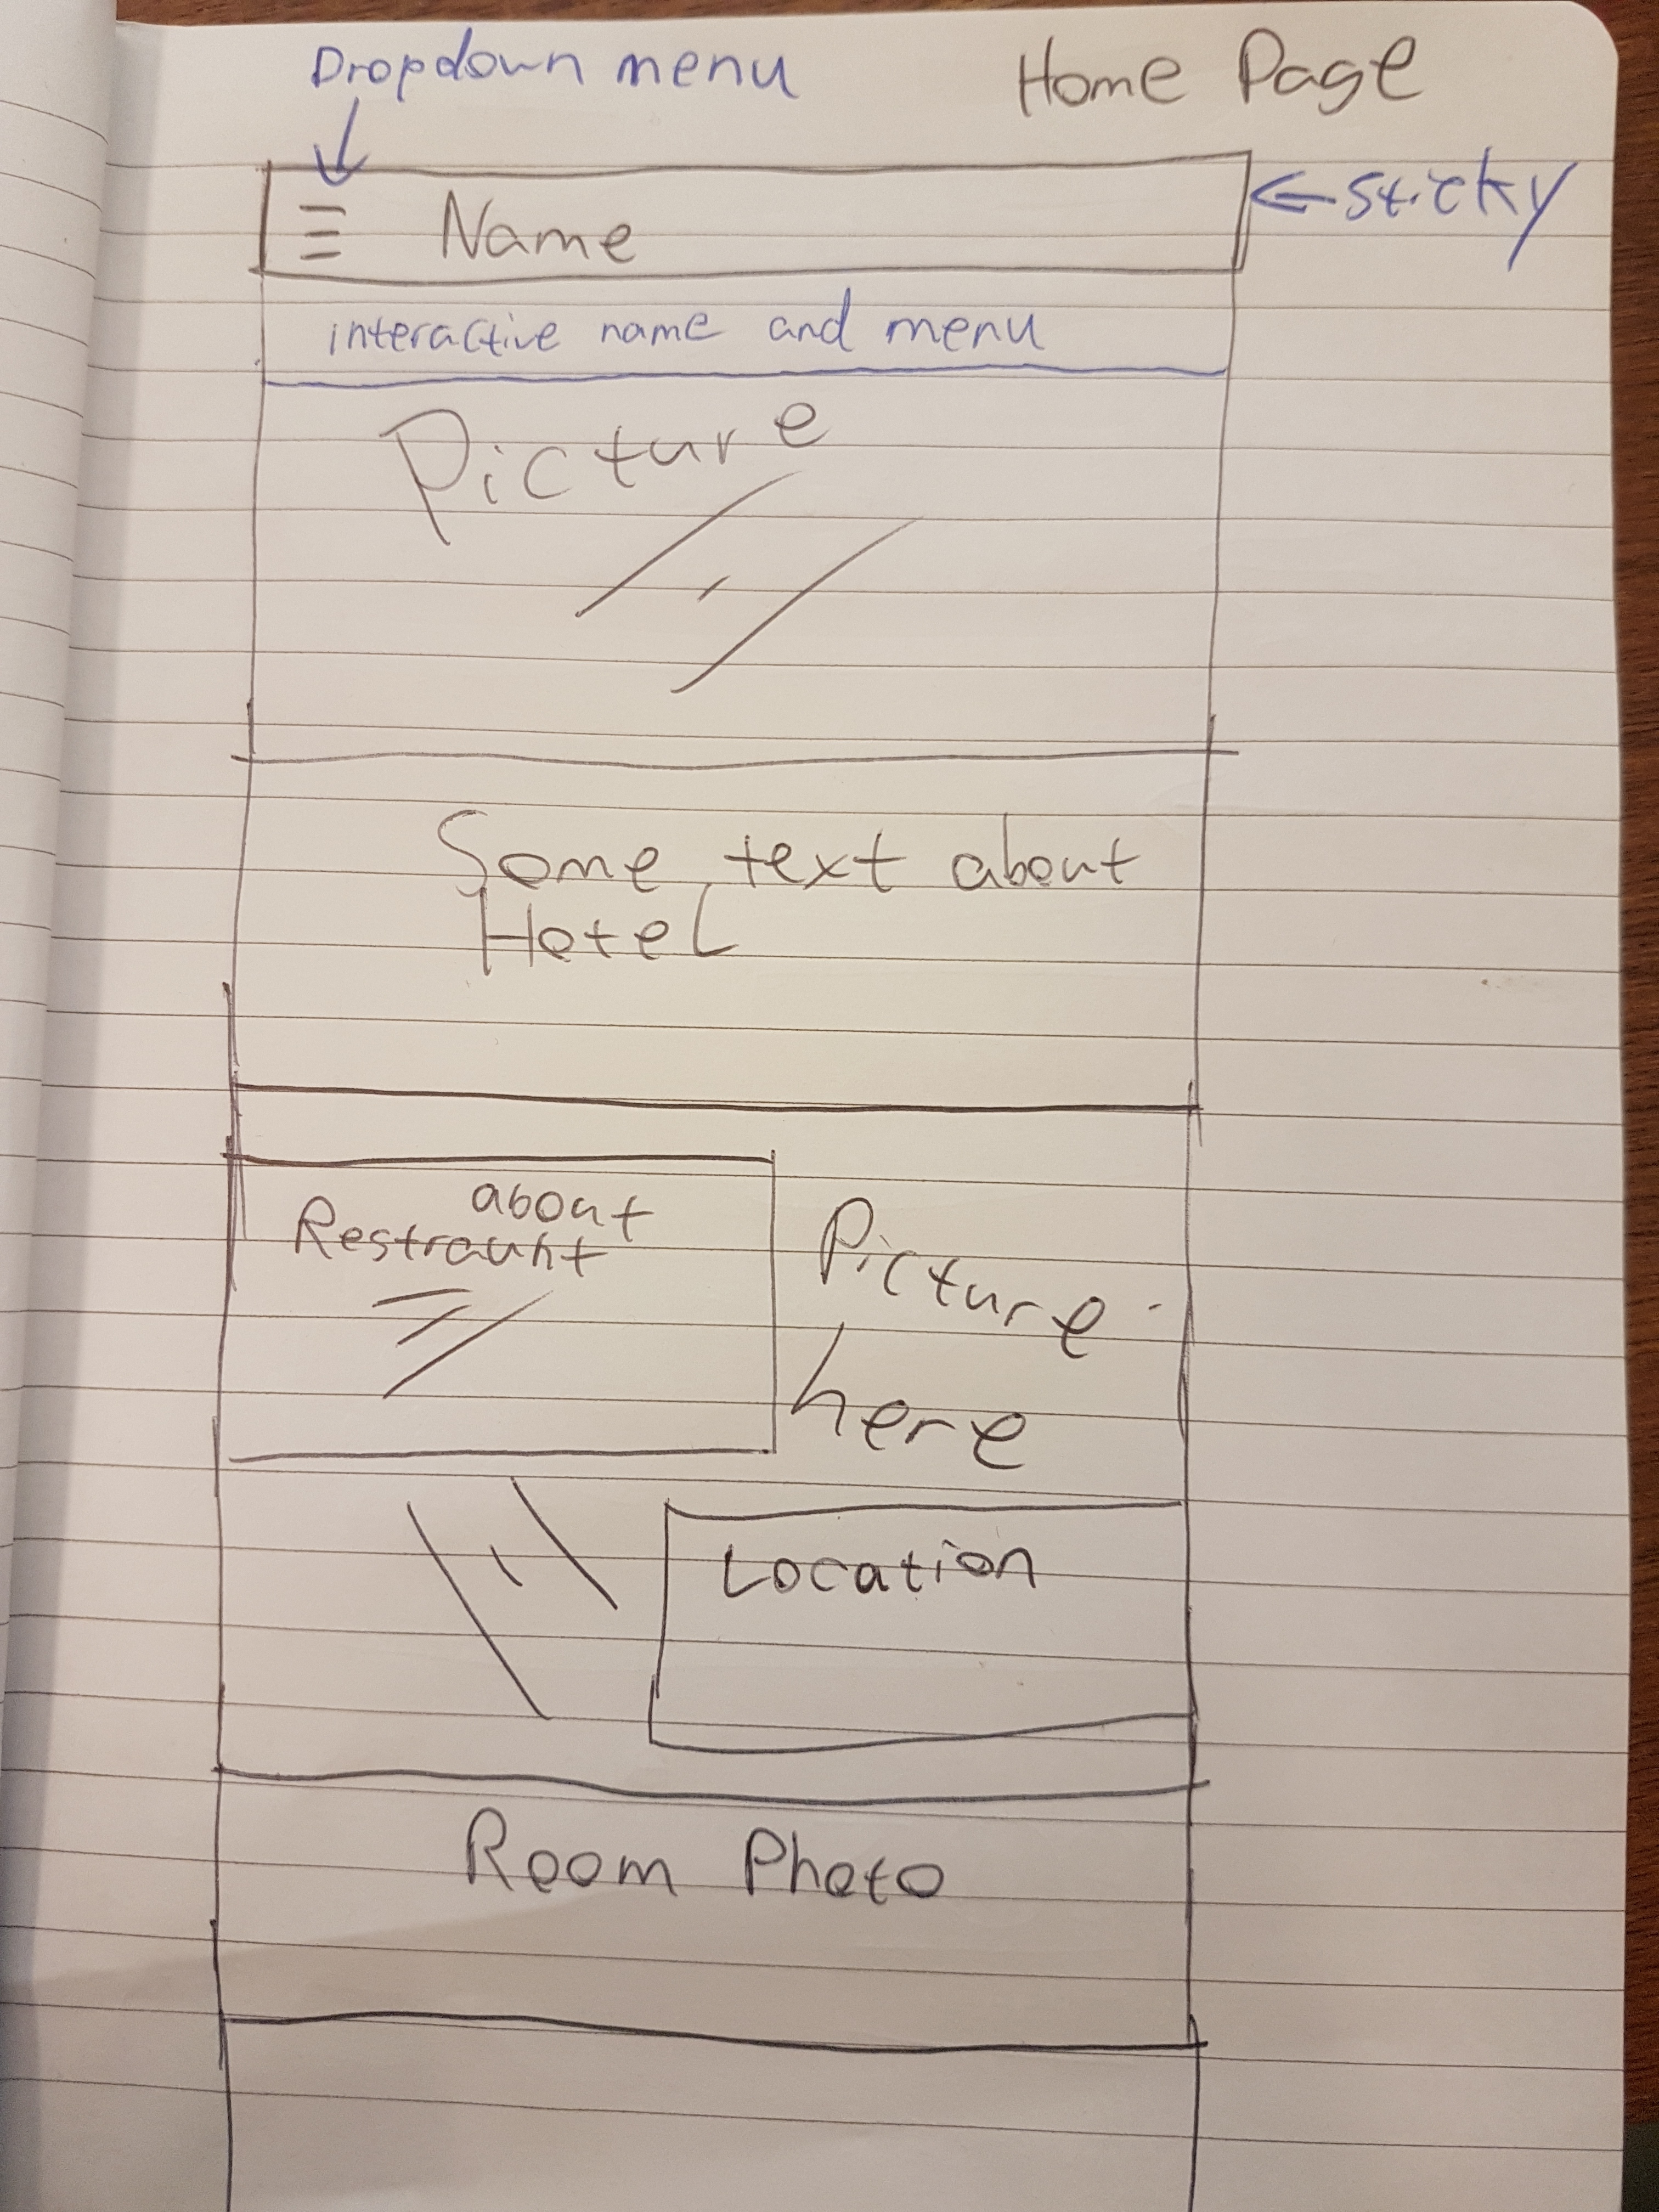 Dropdown menu
Home Page
Name
sticky
interactive name and menu
Picture
Some text about
Hotel
about
Restraunt
Picture
here
Location
Room Photo